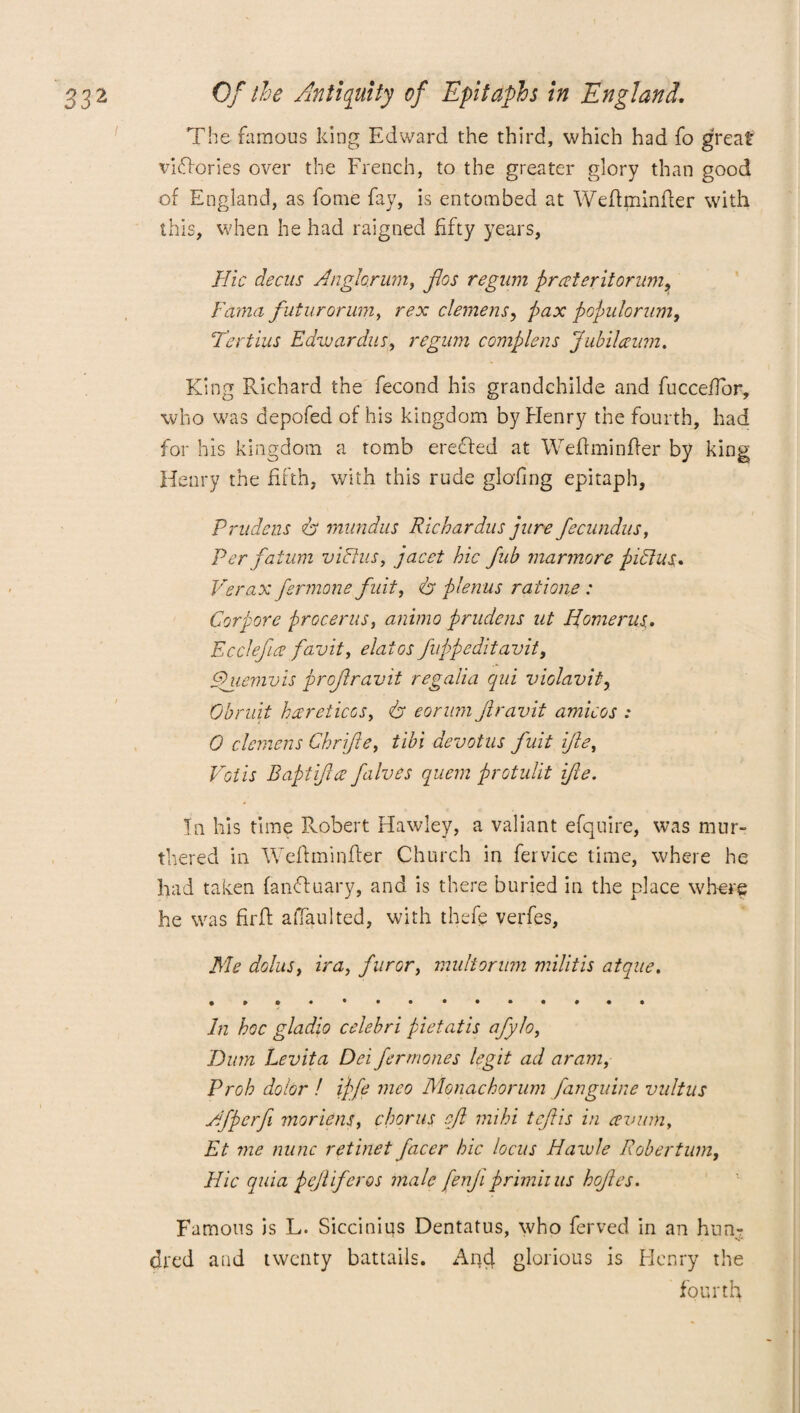 332 Of the Antiquity of Epitaphs in England.
The famous king Edward the third, which had ſo great
victories over the French, to the greater glory than good
of England, as ſome ſay, is entombed at Weſtminſter with
this, when he had raigned fifty years,
Hic decus Anglorum, flos regum præteritorum,
Fama futurorum, rex clemens, pax populorum,
Tertius Edwardus, regum complens Jubilæum.
King Richard the ſecond his grandchilde and ſucceſſor,
who was depoſed of his kingdom by Henry the fourth, had
for his kingdom a tomb erected at Weſtminſter by king
Henry the fifth, with this rude gloſing epitaph,
Prudens & mundus Richardus jure ſecundus,
Per fatum victus, jacet hic ſub marmore pictus.
Verax ſermone fuit, & plenus ratione :
Corpore procerus, animo prudens ut Homerus.
Eccleſiæ favit, elatos ſuppeditavit,
Quemvis proſtravit regalia qui violavit,
Obruit hæreticos, & eorum ſtravit amicos :
O clemens Chriſte, tibi devotus fuit iſte,
Votis Baptiſtæ ſalves quem protulit iſte.
In his time Robert Hawley, a valiant eſquire, was mur-
thered in Weſtminſter Church in ſervice time, where he
had taken ſanctuary, and is there buried in the place where
he was firſt aſſaulted, with theſe verſes,
Me dolus, ira, furor, multorum militis atque.
. . . . . . . . . . . . . .
In hoc gladio celebri pietatis aſylo,
Dum Levita Dei ſermones legit ad aram,
Proh dolor ! ipſe meo Monachorum ſanguine vultus
Aſperſi moriens, chorus eſt mihi teſtis in ævum,
Et me nunc retinet ſacer hic locus Hawle Robertum,
Hic quia peſtiferos male ſenſi primitus hoſtes.
Famous is L. Siccinius Dentatus, who ſerved in an hun-
dred and twenty battails. And glorious is Henry the
fourth